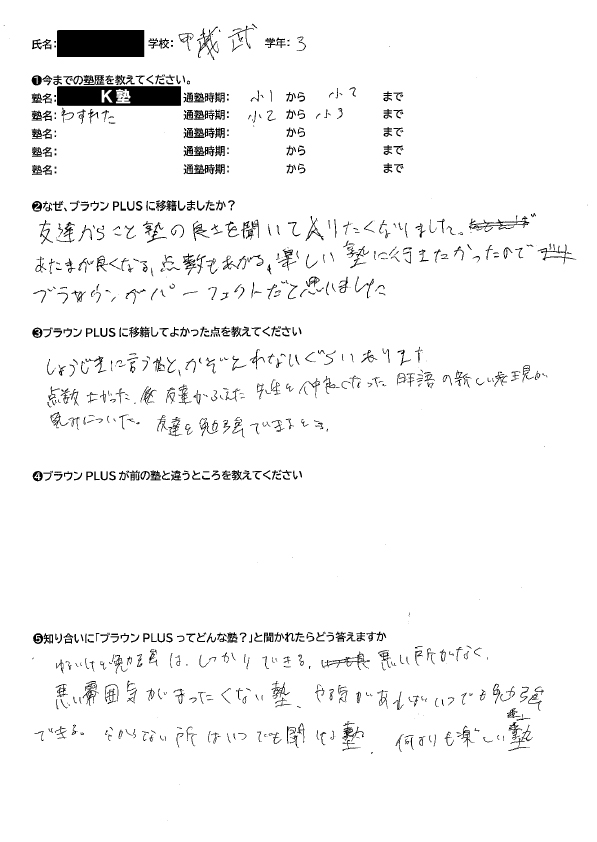 氏名: 学校: 甲越武 学年: 3
❶今までの塾歴を教えてください。
塾名: K塾 通塾時期: 小1 から 小2 まで
塾名: わすれた 通塾時期: 小2 から 小3 まで
塾名: 通塾時期: から まで
塾名: 通塾時期: から まで
塾名: 通塾時期: から まで
❷なぜ、ブラウンPLUSに移籍しましたか?
友達からこと塾の良さを聞いて入りたくなりました。
あたまが良くなる、点数もあがる、楽しい塾に行きたかったので
ブラウンがパーフェクトだと思いました
❸ブラウンPLUSに移籍してよかった点を教えてください
しょうじきに言うと、かぞえれないぐらいあります
点数上がった、友達がふえた 先生と仲良くなった 日本語の新しい表現が
見みについた。友達と勉強できるところ。
❹ブラウンPLUSが前の塾と違うところを教えてください
❺知り合いに「ブラウンPLUSってどんな塾?」と聞かれたらどう答えますか
勉強は、しっかりできる、悪い所がなく、
悪い雰囲気がまったくない塾、やる気があればいつでも勉強
できる。分からない所はいつでも聞ける塾、何よりも楽しい塾